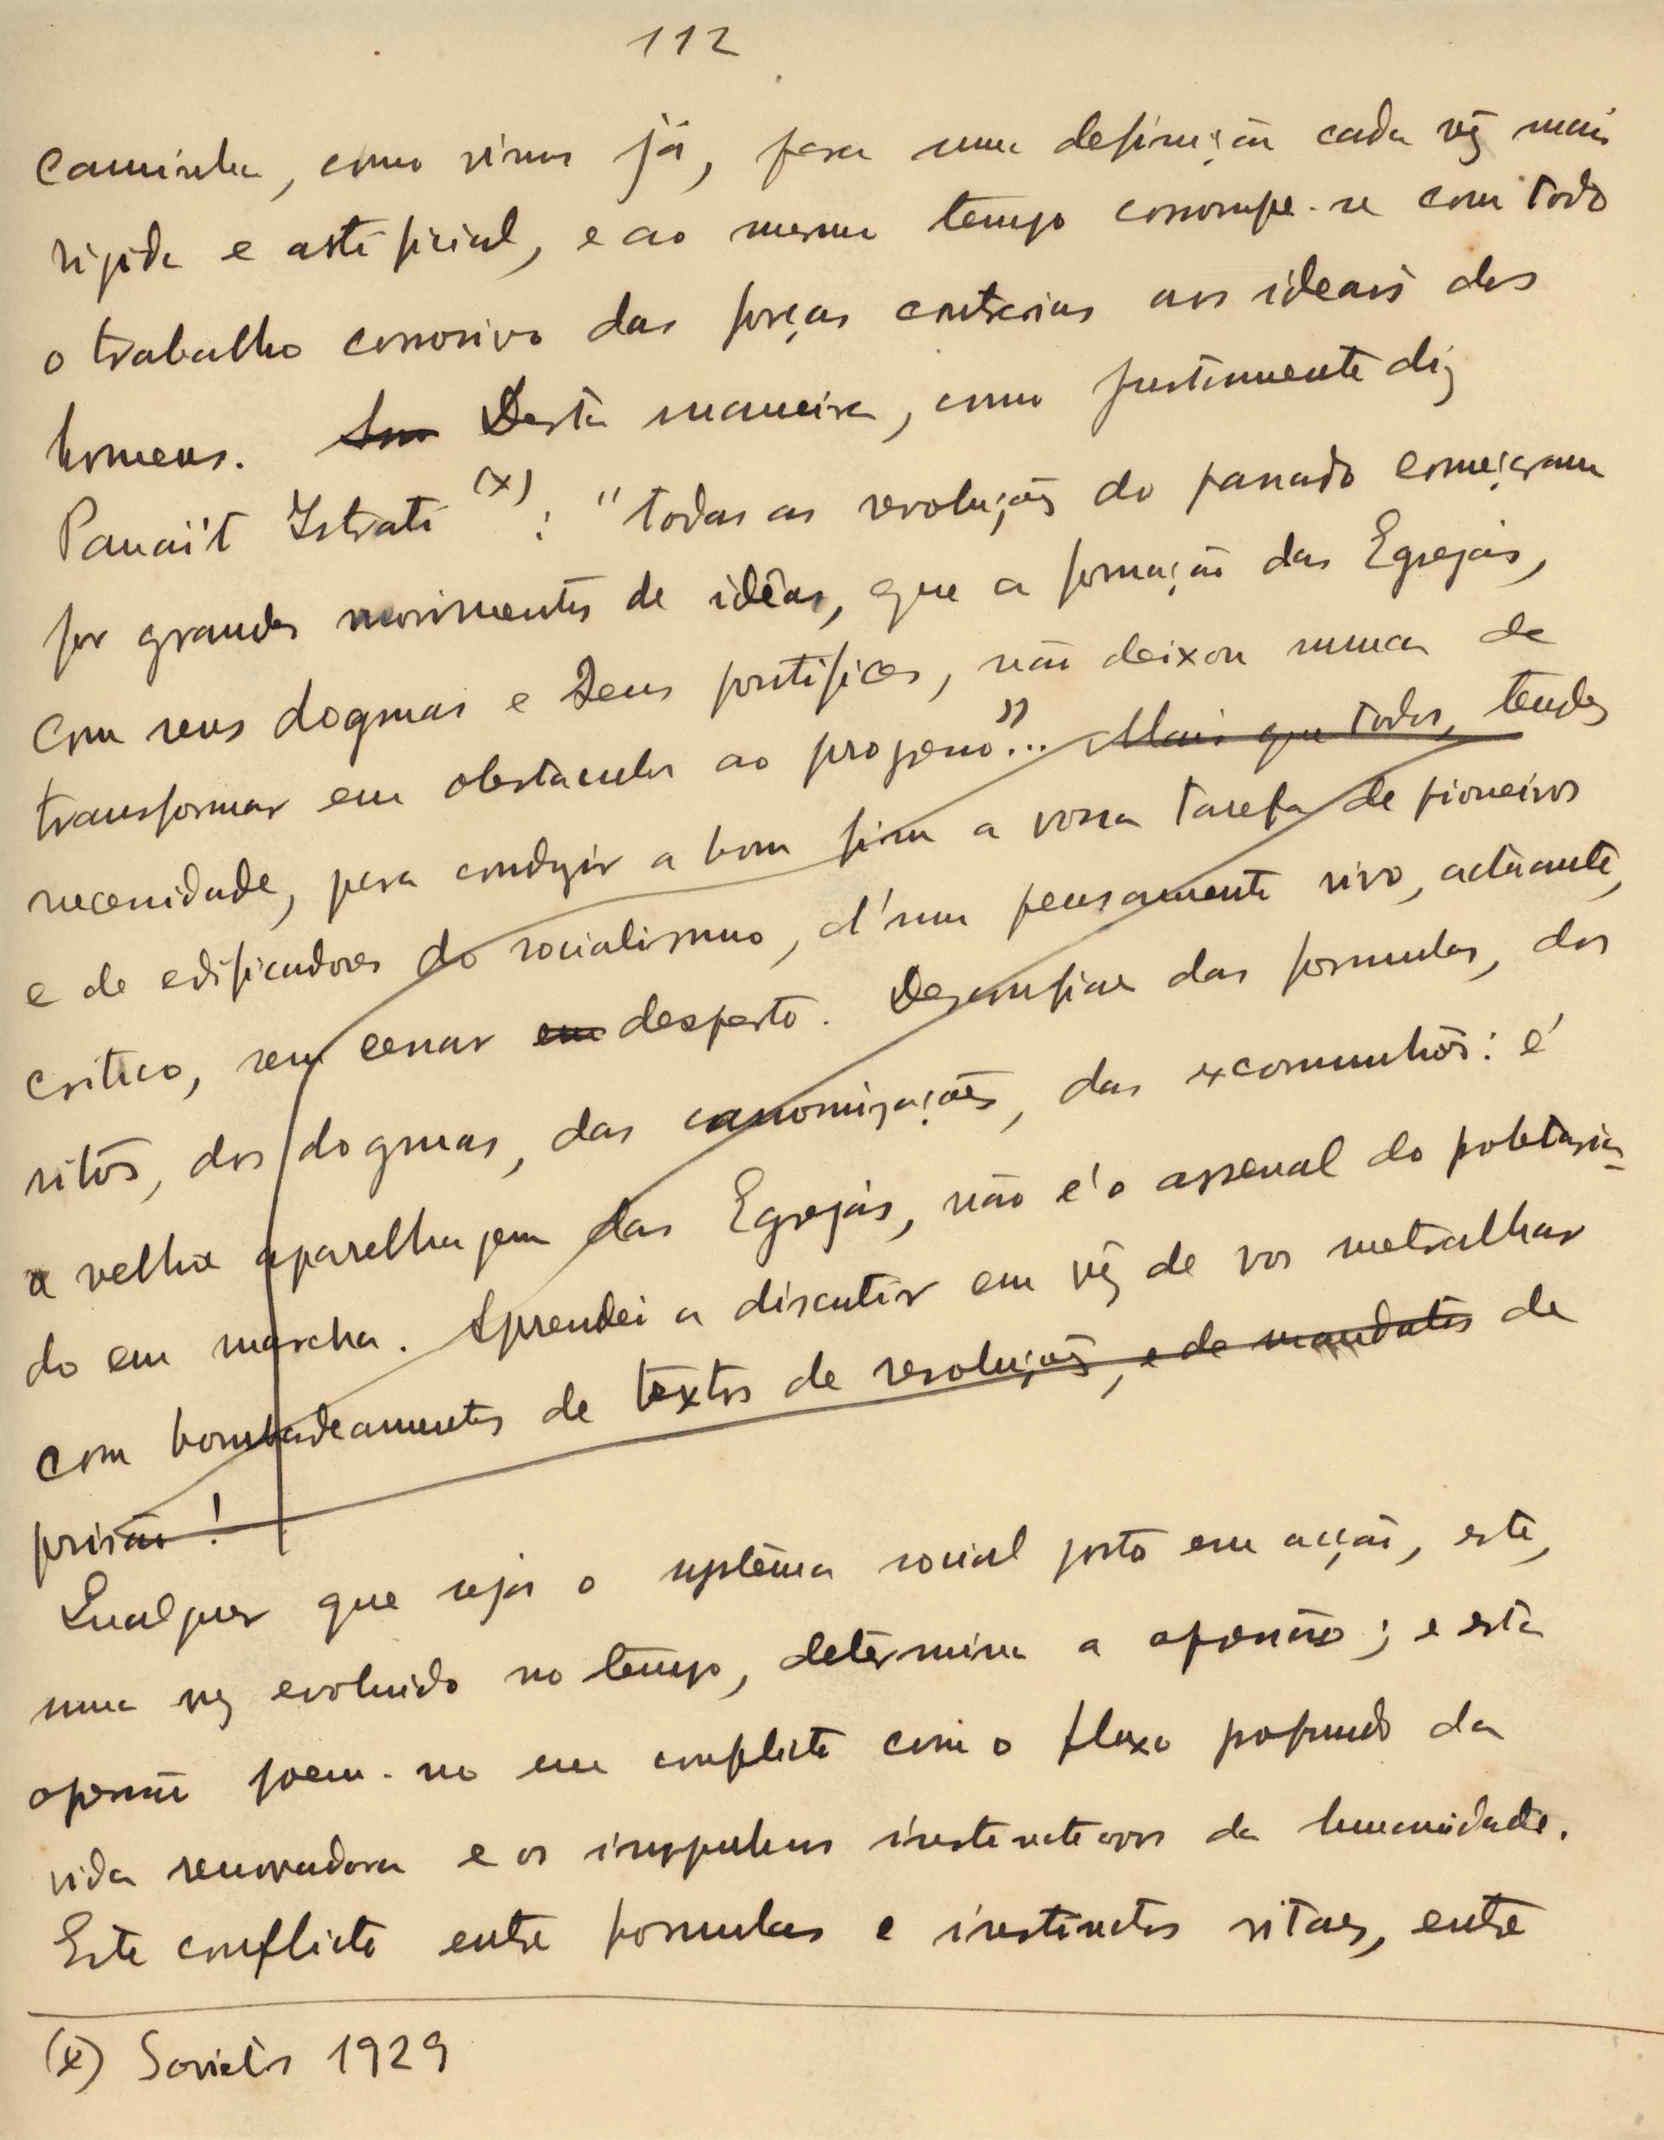 112
caminha, como vimos já, para uma definição cada vêz mais
rigida e artificial, e ao mesmo tempo corrompe-se com todo
o trabalho corrosivo das forças contrarias aos ideais dos
homens. Desta maneira, como justamente diz
Panaït Istrati (x): "todas as revoluções do passado começaram
por grandes movimentos de idêas, que a formação das Egrejas,
com seus dogmas e seus pontifices, não deixou nunca de
transformar em obstaculos ao progresso"... Mais que todos, tendes
necessidade, para conduzir a bom fim a vossa tarefa de pioneiros
e de edificadores do socialismo, d'um pensamento vivo, actuante,
critico, sem cessar em desperto. Desconfiae das formulas, dos
ritos, dos dogmas, das canonizações, das excomunhões: é
a velha aparelhagem das Egrejas, não é o arsenal do poletaria-
do em marcha. Aprendei a discutir em vêz de vos metralhar
com bombadeamentos de textos de resoluções, e de mandatos de
prisão!
Qualquer que seja o systêma social posto em acção, este,
uma vez evoluido no tempo, determina a opressão; e esta
opressão poem-no em conflicto com o fluxo profundo da
vida renovadora e os impulsos instinctivos da humanidade.
Este conflicto entre formulas e instinctos vitaes, entre
(x) Soviets 1929